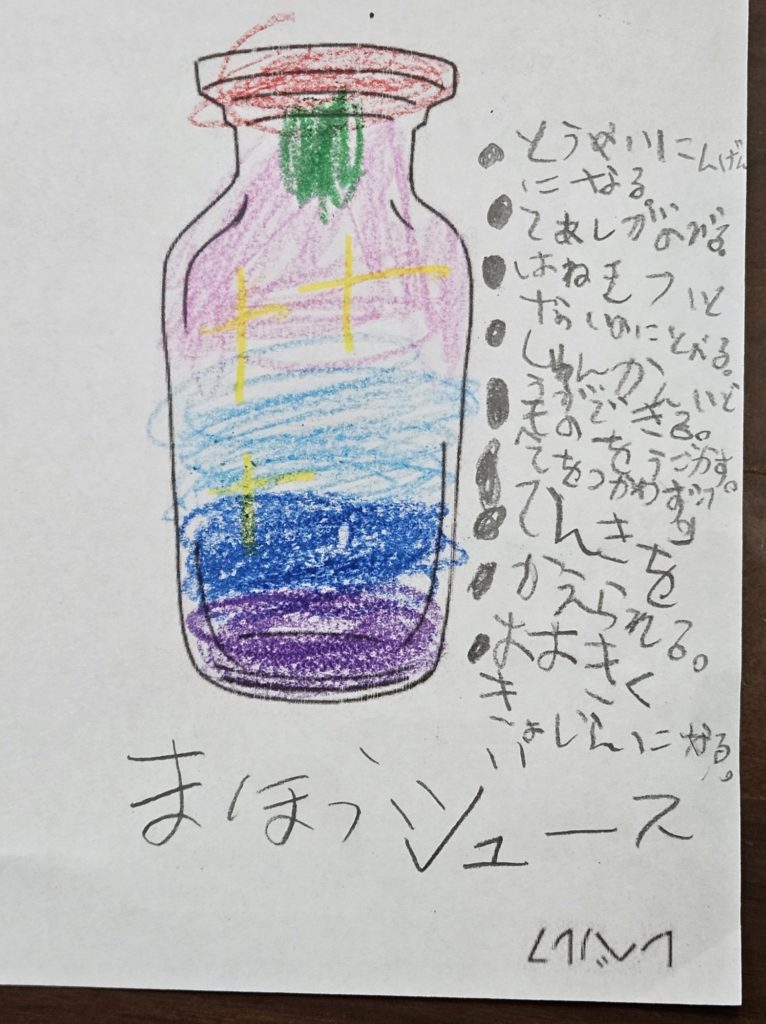 とうめいにんげん
になる
てあしがのびる。
はねをつ
にとべる。
しゅんかんいど
うができる。
ものをうごかす。
てをつかわず
てんきを
かえられる。
おおきく
きょじんになる。
まほうジュース